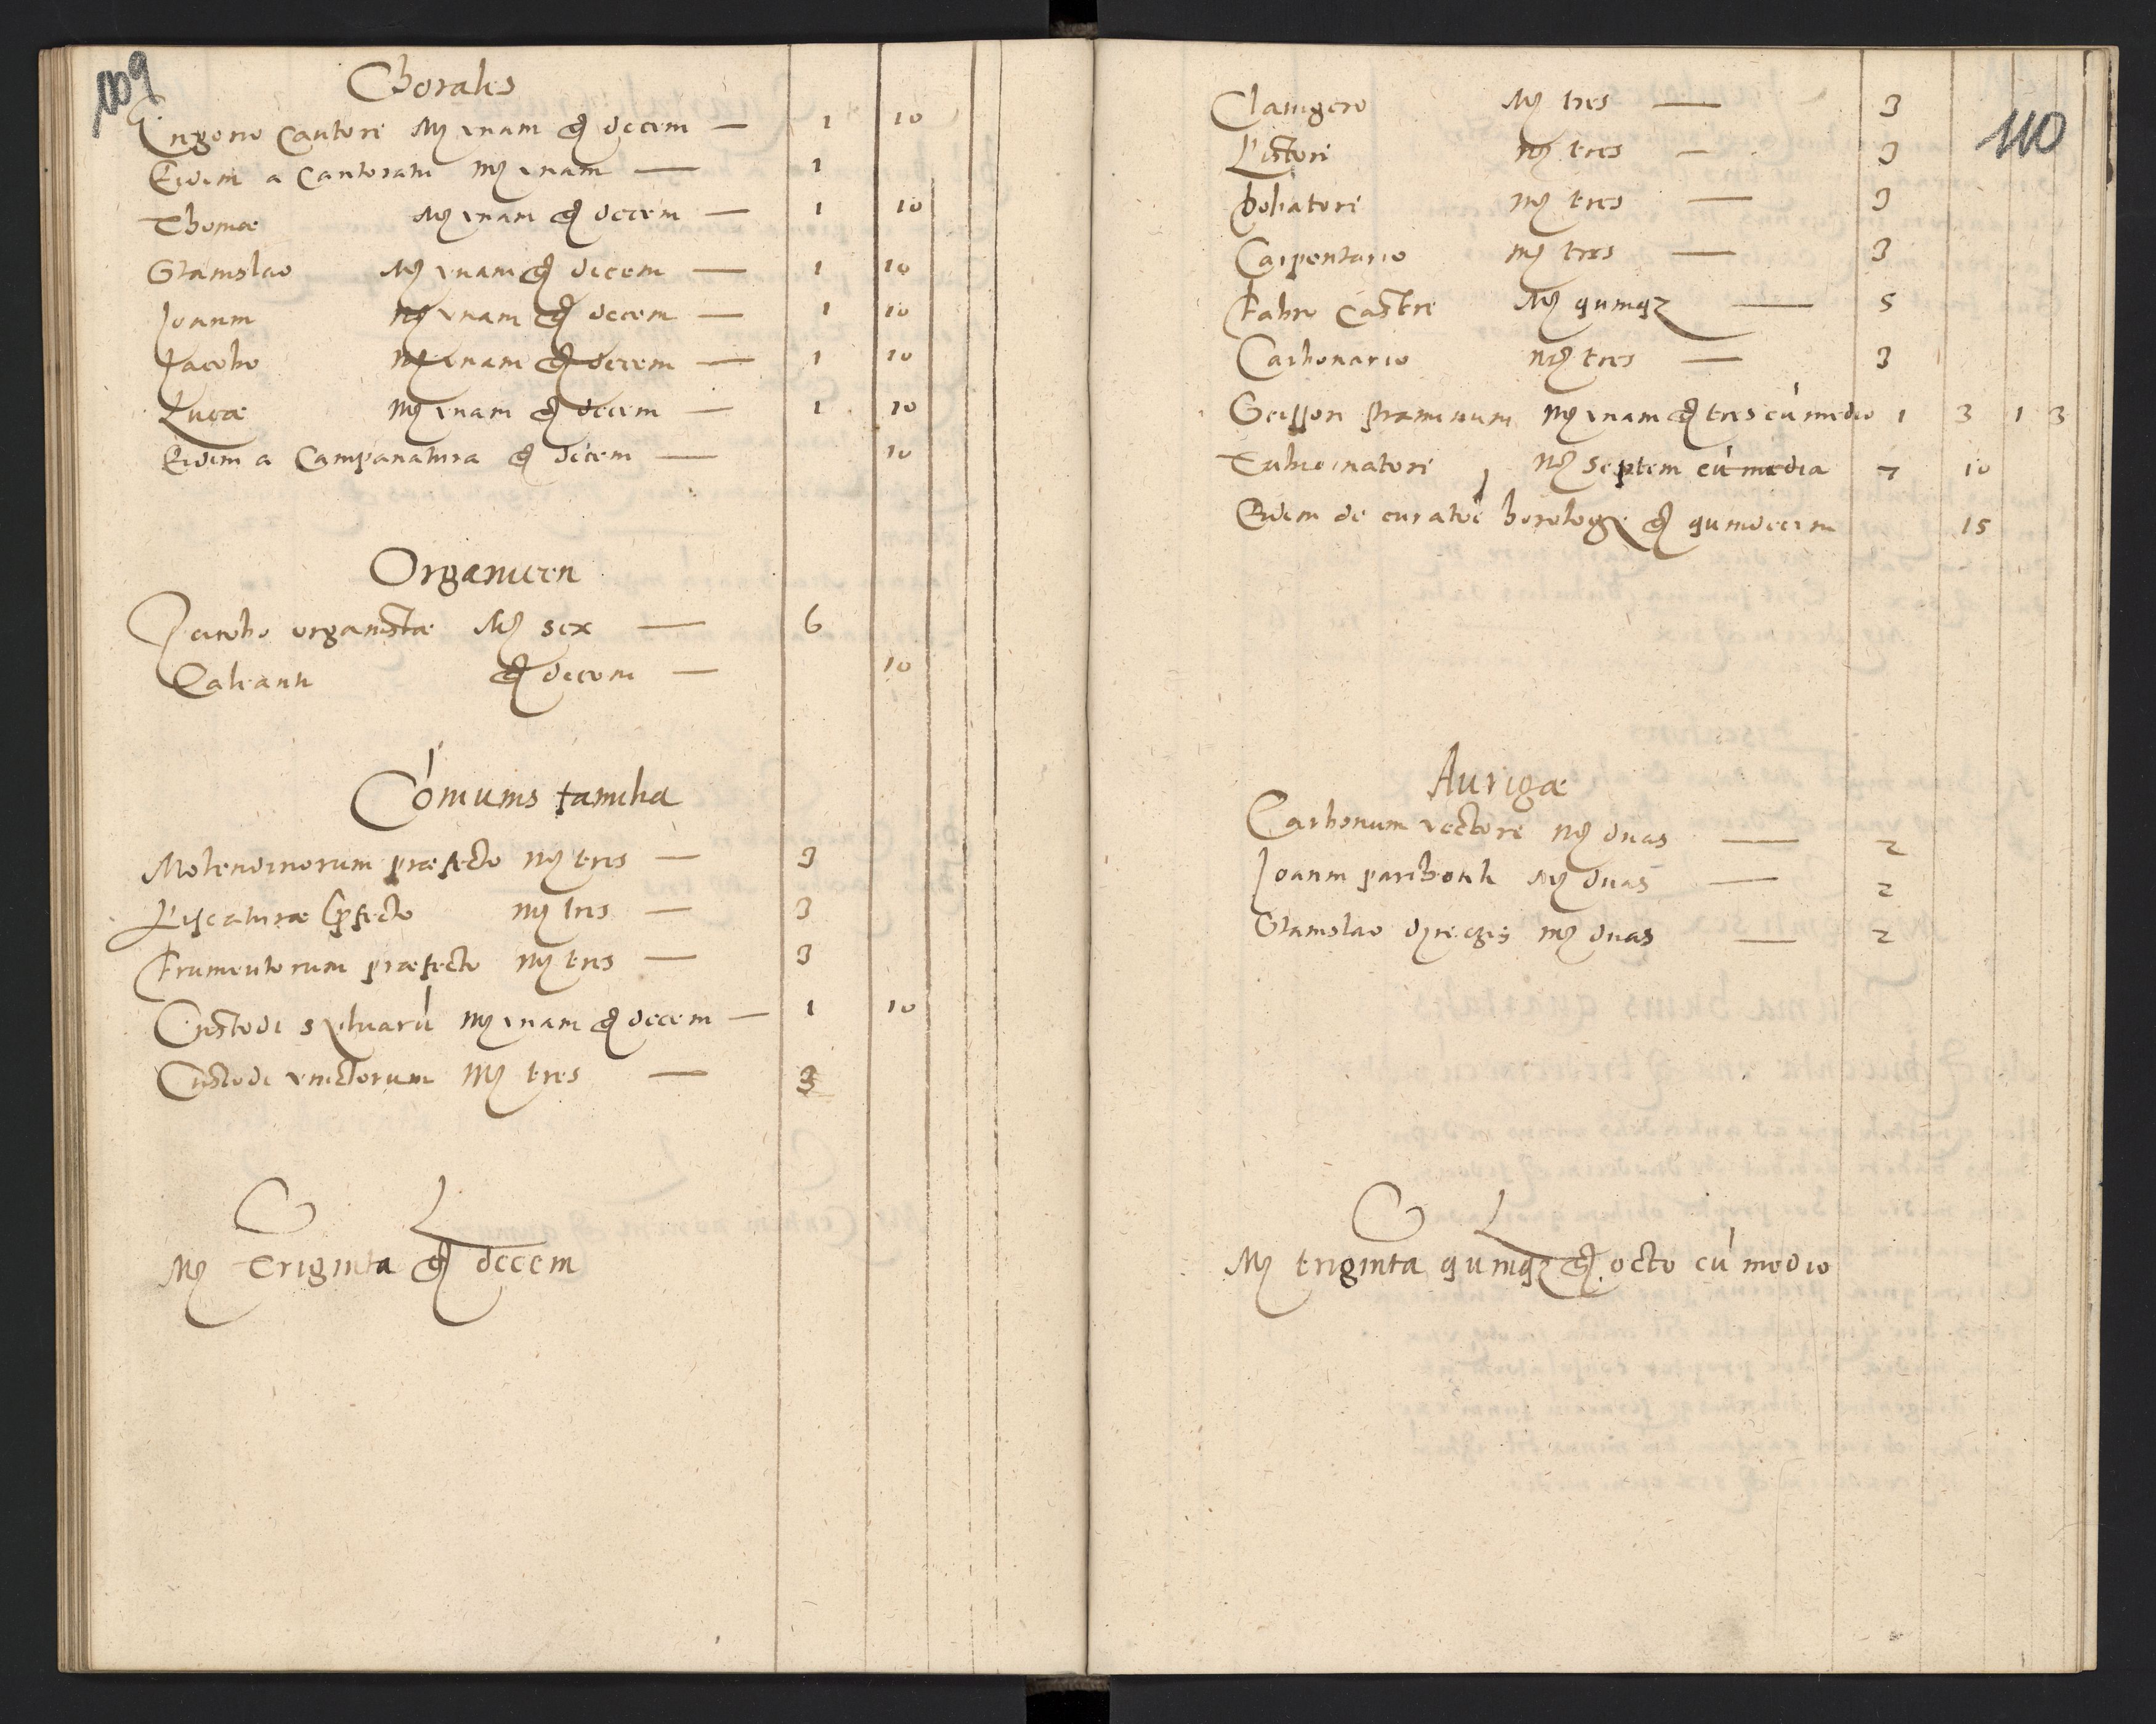 109
Chorales
Grigorio Cantori Mꝭ vnam gꝭ decem — 1 10
Eidem a Cantoratu Mꝭ vnam — 1
Thomæ Mꝭ vnam gꝭ decem — 1 10
Stanislao Mꝭ vnam gꝭ decem — 1 10
Joanni Mꝭ vnam gꝭ decem — 1 10
Jacobo Mꝭ vnam gꝭ decem — 1 10
Lucæ Mꝭ vnam gꝭ decem — 1 10
Eidem a Campanatura gꝭ decem — 10
Organicen
Jacobo organistæ Mꝭ sex — 6
Calcanti gꝭ decem — 10
Cōmunis familia
Molendinorum præfecto Mꝭ tres — 3
Piscaturæ p̄fecto Mꝭ tres — 3
Frumentorum præfecto Mꝭ tres — 3
Custodi syluarū Mꝭ vnam gꝭ decem — 1 10
Custodi vinctorum Mꝭ tres — 3
Mꝭ triginta gꝭ decem
110
Clauigero Mꝭ tres — 3
Pistori Mꝭ tres — 3
Doliatori Mꝭ tres — 3
Carpentario Mꝭ tres — 3
Fabro Castri Mꝭ quinqꝫ — 5
Carbonario Mꝭ tres — 3
Scissori straminum Mꝭ vnam gꝭ tres cū medio 1 3 1 3
Tubicinatori Mꝭ septem cū media 7 10
Eidem de curatōe horologÿ gꝭ quindecim 15
Aurigæ
Carbonum vectori Mꝭ duas — 2
Joanni Mꝭ duas — 2
Stanislao Mꝭ duas — 2
Mꝭ triginta quinqꝫ gꝭ octo cū medio